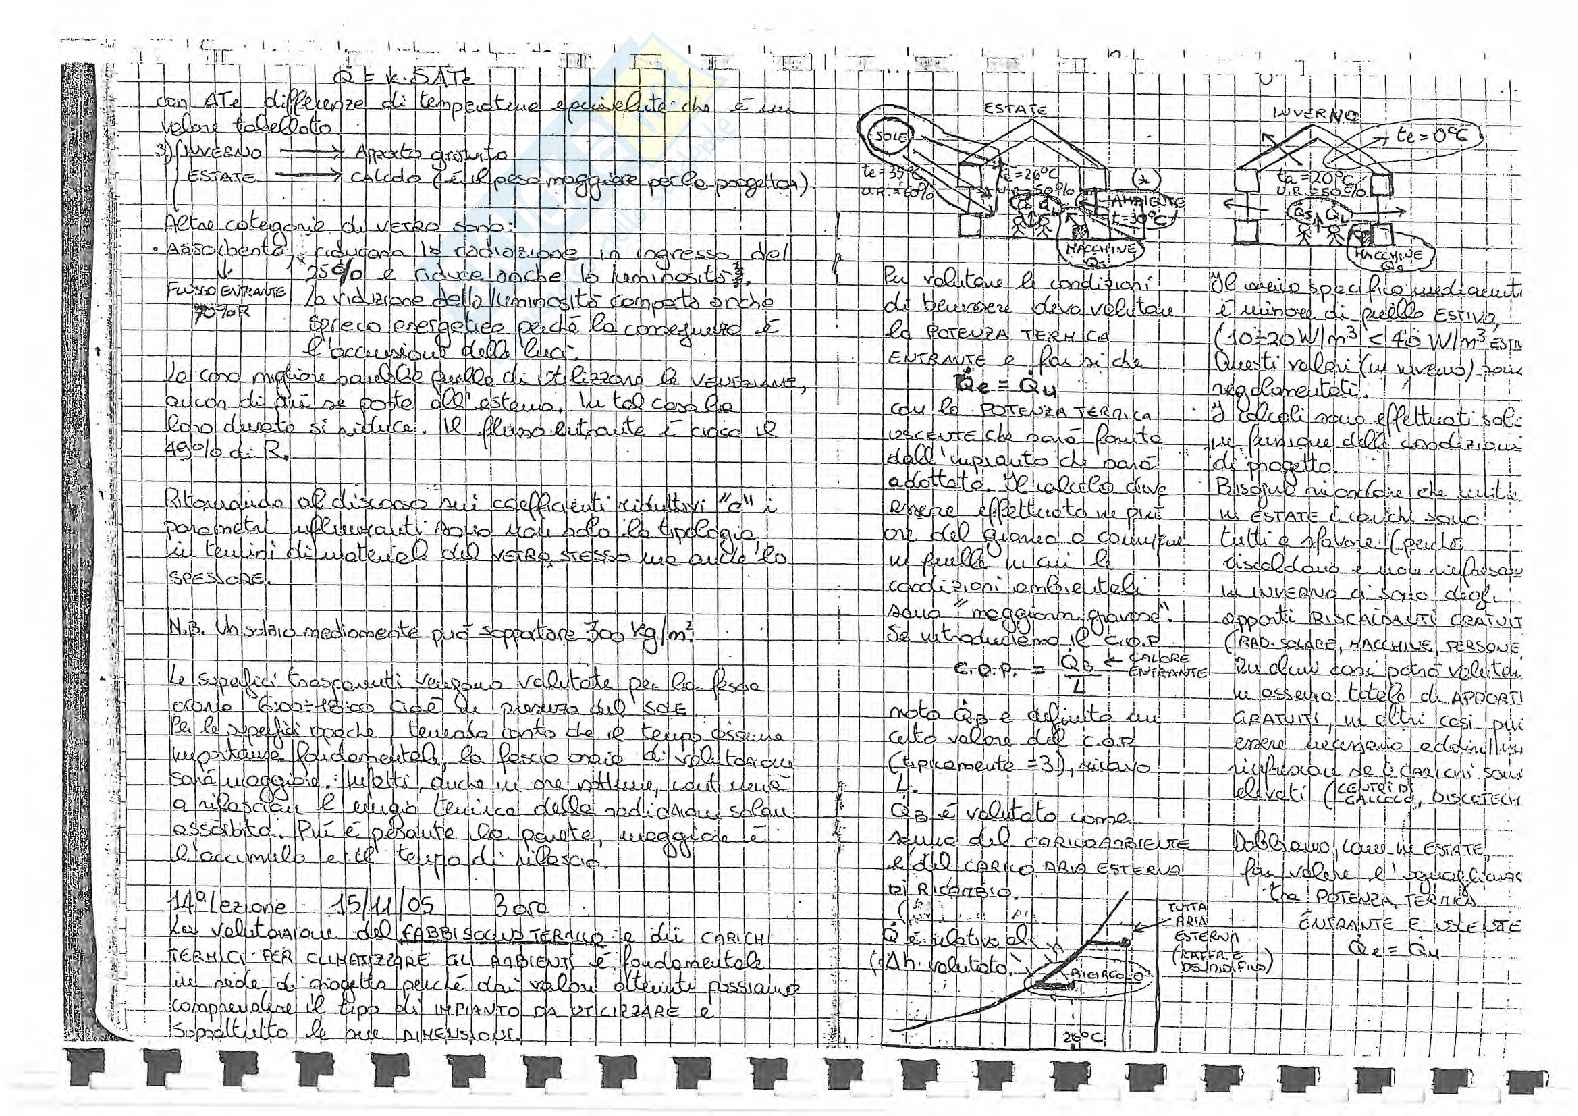 Q̇ = K·S ΔTe
con ΔTe differenze di temperature equivalente che è un
valore tabellato
3) INVERNO → Apporto gratuito
ESTATE → calcolo (è il peso maggiore per la progettaz)
Altre categorie di VETRO sono:
• Assorbente: riducono la radiazione in ingresso del
25% e riduce anche la luminosità.
FLUSSO ENTRANTE
70% R
La riduzione della luminosità comporta anche
spreco energetico perché la conseguenza è
l'accensione delle luci.
La cosa migliore sarebbe quella di utilizzare le VENEZIANE,
ancor di più se poste all'esterno. In tal caso la
loro durata si riduce. Il flusso entrante è circa il
49% di R.
Ritornando al discorso sui coefficienti riduttivi "a" i
parametri influenzanti sono non solo la tipologia
in termini di materiale del VETRO STESSO ma anche lo
SPESSORE.
N.B. Un solaio mediamente può sopportare 300 Kg/m²
Le superfici trasparenti vengono valutate per la fascia
oraria 6:00÷18:00 cioè in presenza del SOLE
Per le superfici opache, tenendo conto che il tempo assume
importanza fondamentale, la fascia oraria di valutazione
sarà maggiore. Infatti, anche in ore notturne, continua
a rilasciare l'energia termica delle radiazioni solari
assorbita. Più è pesante la parete, maggiore è
l'accumulo e il tempo di rilascio.
14ª Lezione 15/11/05 3 ore
La valutazione del FABBISOGNO TERMICO e dei CARICHI
TERMICI PER CLIMATIZZARE GLI AMBIENTI è fondamentale
in sede di progetto perché dai valori ottenuti possiamo
comprendere il tipo di IMPIANTO DA UTILIZZARE e
soprattutto le sue DIMENSIONI.
ESTATE
SOLE
te=35°C
U.R.=60%
ta=26°C
U.R.=50%
(*)
AMBIENTE
t=30°C
MACCHINE
Qs
Per valutare le condizioni
di benessere devo valutare
la POTENZA TERMICA
ENTRANTE e far sì che
Q̇e = Q̇u
con la POTENZA TERMICA
USCENTE che sarà fornita
dall'impianto che sarà
adottato. Il calcolo deve
essere effettuato in più
ore del giorno o comunque
in quelle in cui le
condizioni ambientali
sono "maggiorm. gravose".
Se introduciamo il C.O.P.
C.O.P. = Q̇B / L ← CALORE ENTRANTE
noto Q̇B e definito un
certo valore del C.O.P.
(tipicamente =3), ricavo
L.
Q̇B è valutato come
somma del CARICO AMBIENTE
e del CARICO ARIA ESTERNA
DI RICAMBIO.
Q̇ è relativo al
Δh valutato.
TUTTA
ARIA
ESTERNA
(RAFFR. E
DEUMIDIFICO)
RICIRCOLO
26°C
INVERNO
te=0°C
ta=20°C
U.R.=50%
Qs QL
MACCHINE
Qs
Il carico specifico
è minore di quello ESTIVO,
(10÷20 W/m³ < 40 W/m³ ESTA
Questi valori (in INVERNO) sono
regolamentati.
I calcoli sono effettuati solo
in funzione delle condizioni
di progetto.
Bisogna ricordare che mentre
in ESTATE i carichi sono
tutti a sfavore (perché
riscaldano e non
in INVERNO ci sono degli
apporti RISCALDANTI GRATUIT
(RAD. SOLARE, MACCHINE, PERSONE
In alcuni casi potrò valutare
in assenza totale di APPORTI
GRATUITI, in altri casi può
essere necessario addirittura
raffrescare se i CARICHI sono
elevati (CENTRI DI CALCOLO, DISCOTECH
Dobbiamo, come in ESTATE,
far valere l'uguaglianza
tra POTENZA TERMICA
ENTRANTE E USCENTE
Q̇e = Q̇u